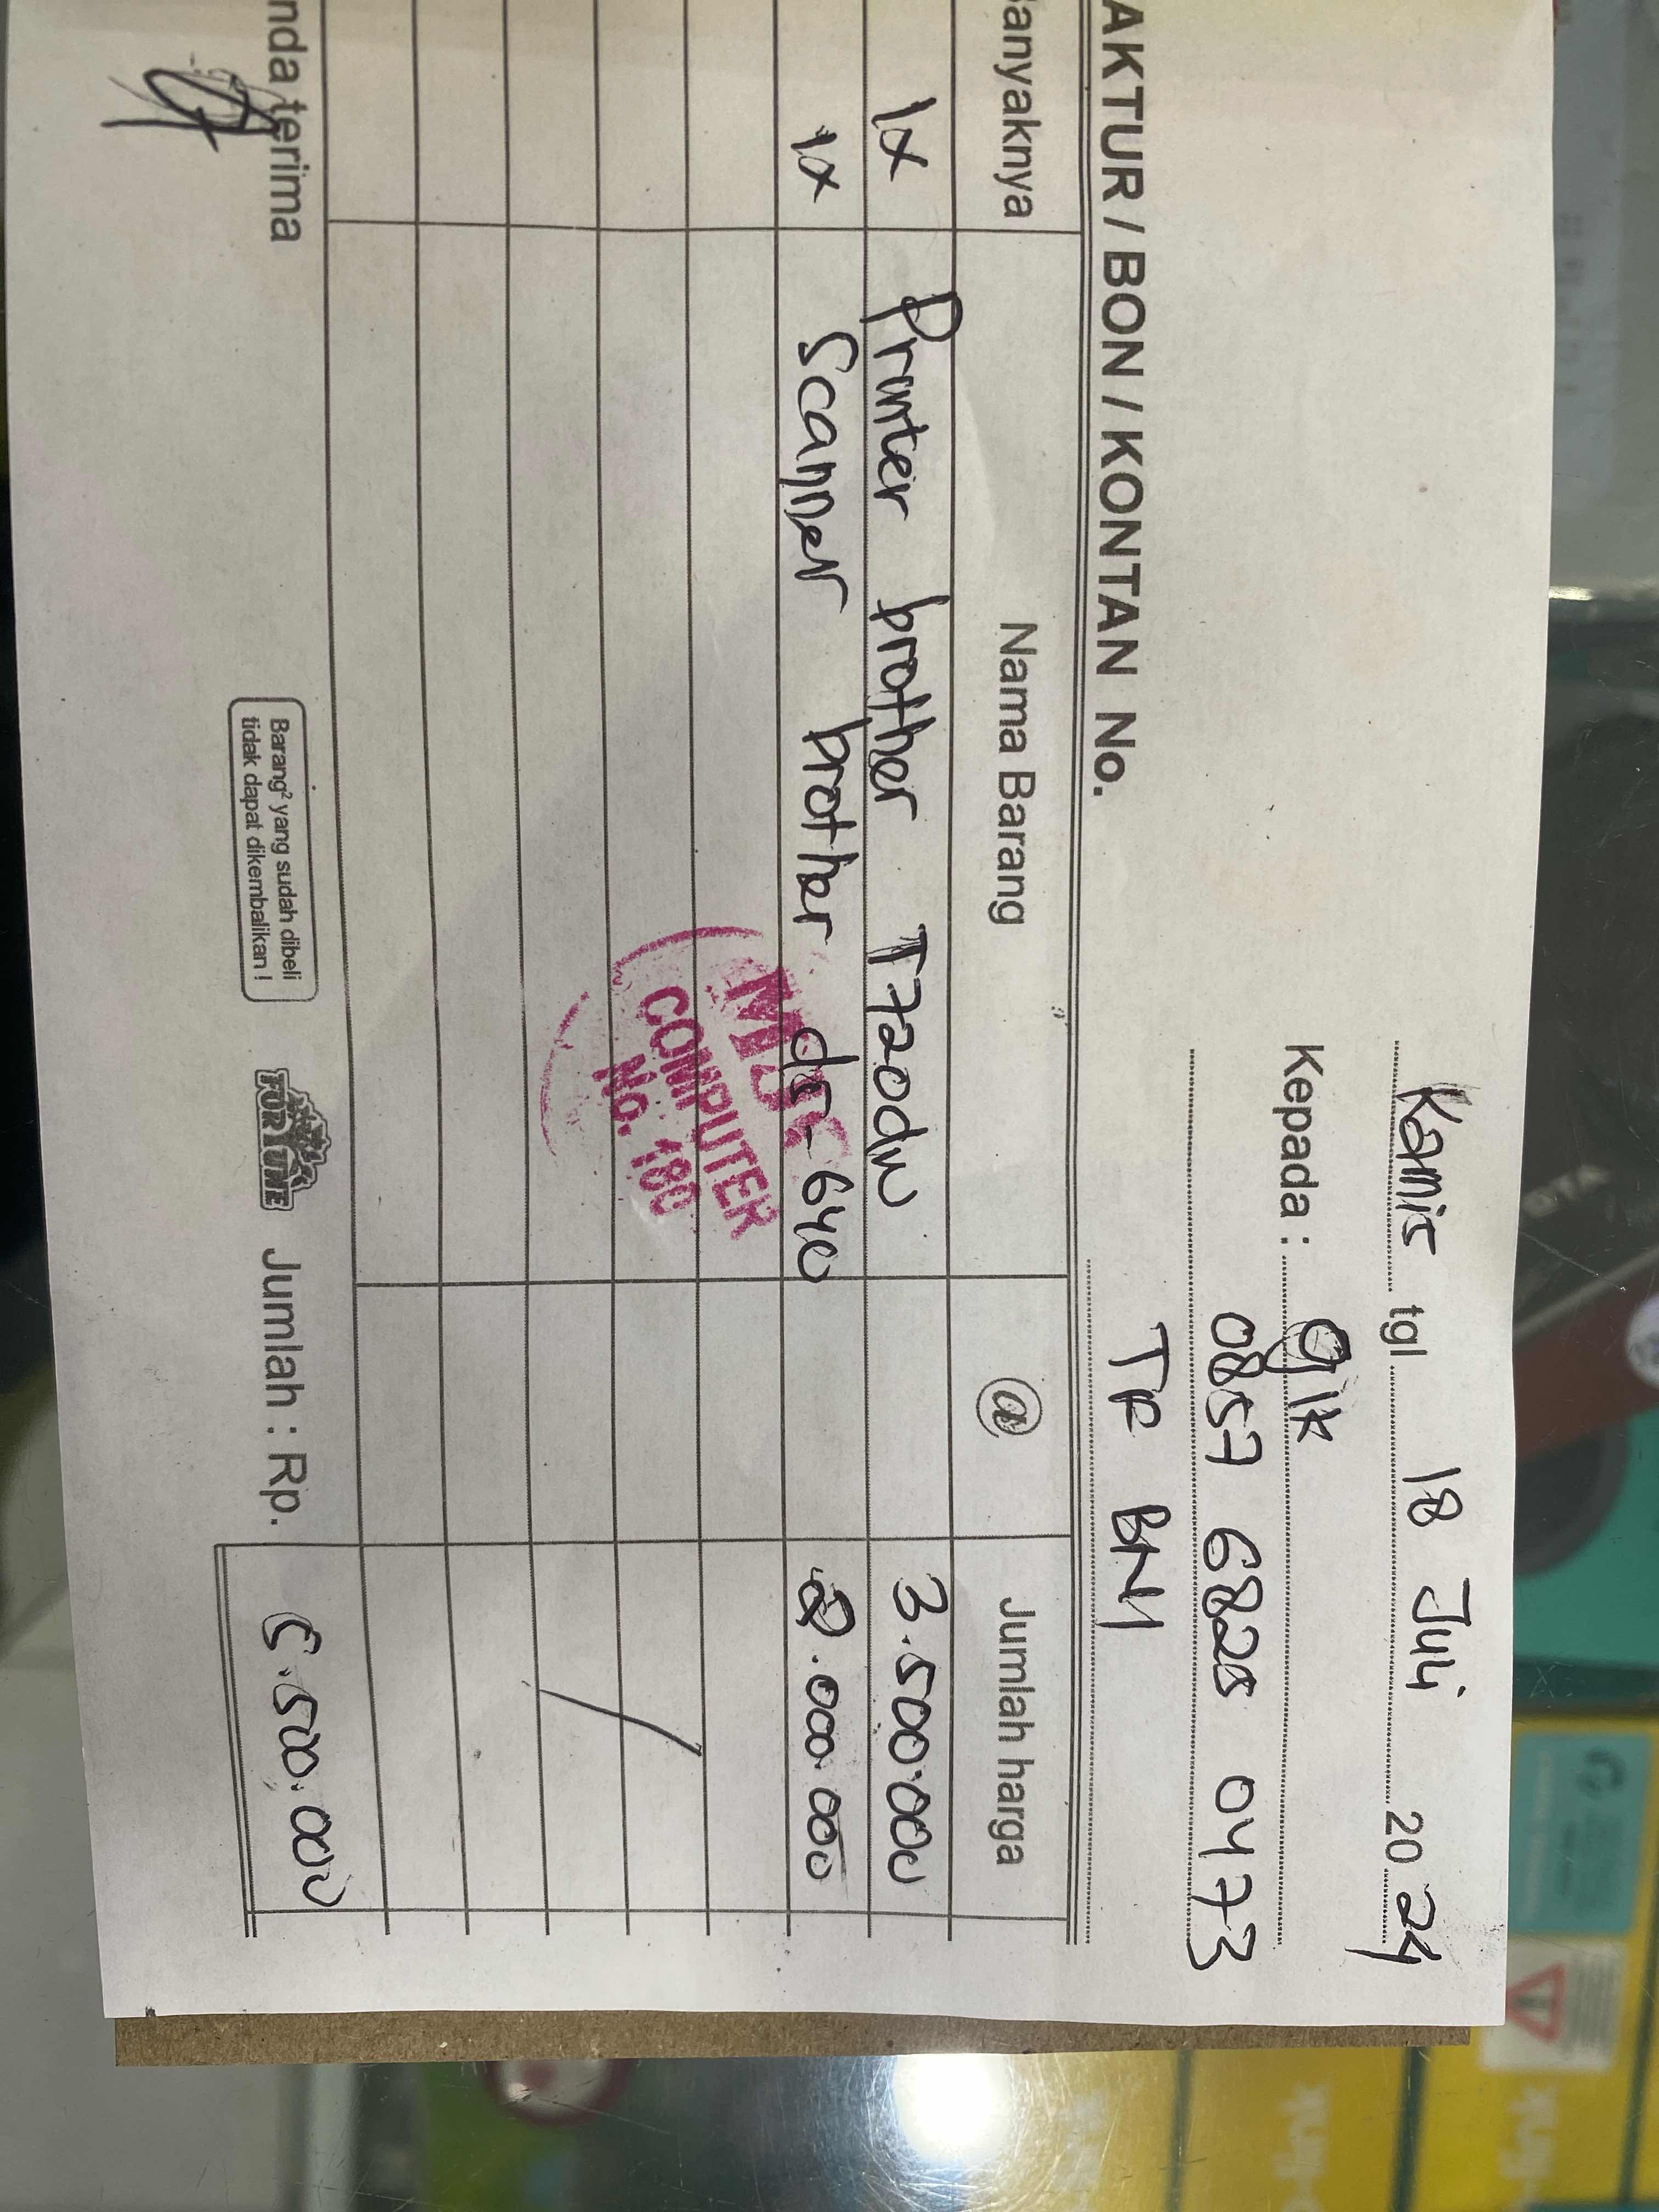 Kamis tgl 18 Juli 2024
Kepada : gik
0857 6828 0473
TF BNI
AKTUR / BON / KONTAN No.
anyaknya Nama Barang @ Jumlah harga
1x Printer brother T720dw 3.500.000
1x Scanner brother ds-640 2.000.000
COMPUTER
No. 180
nda terima
Barang² yang sudah dibeli
tidak dapat dikembalikan !
FORTUNE
Jumlah : Rp. 5.500.000